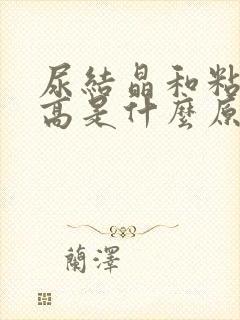 尿結晶和粘
高是什麼原
蘭澤